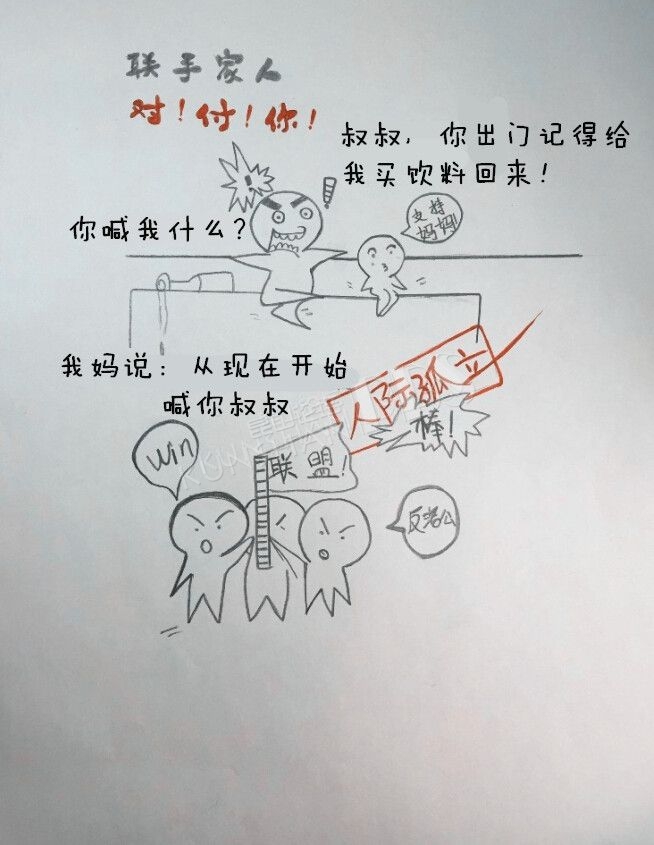 联手家人
对！付！你！
叔叔，你出门记得给
我买饮料回来！
你喊我什么？
支持
妈妈!
我妈说：从现在开始
喊你叔叔
人际孤立
棒！
win
联盟！
反老公